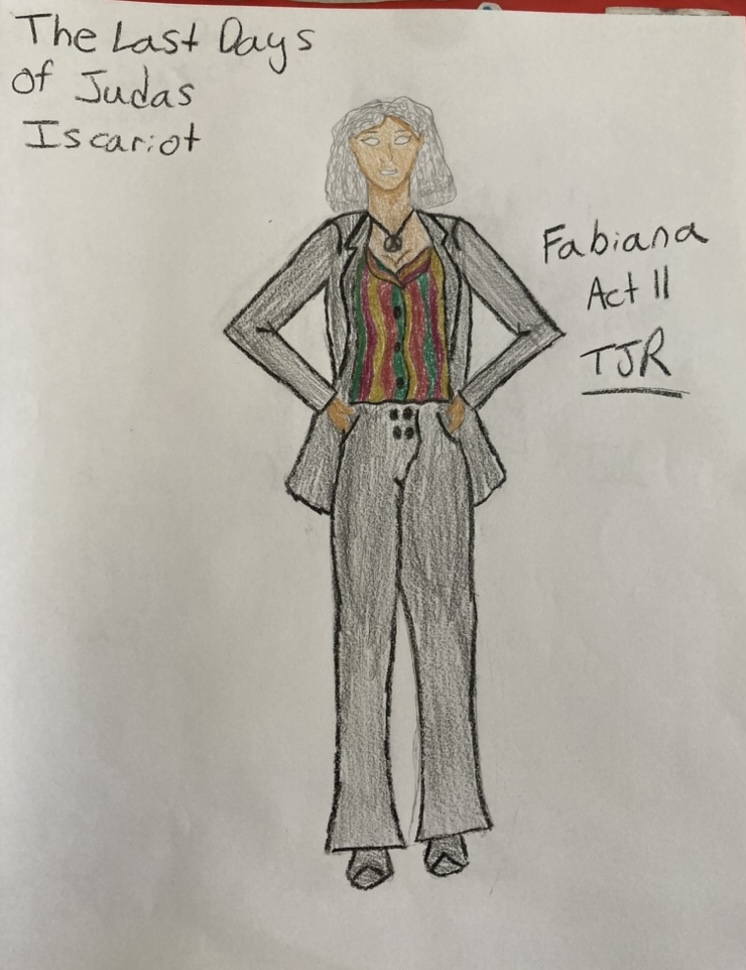 The Last Days
of Judas
Iscariot
Fabiana
Act II
TJR